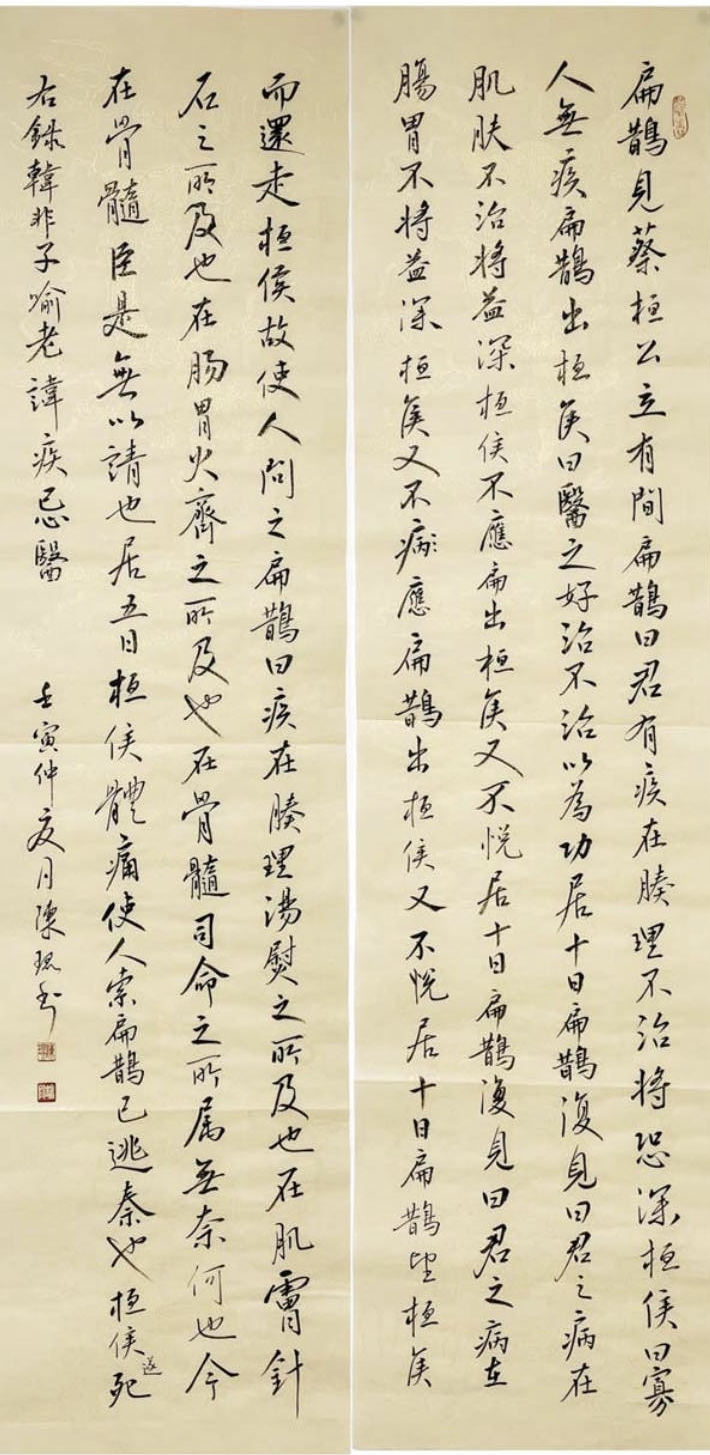 扁鵲見蔡桓公立有間扁鵲曰君有疾在腠理不治將恐深桓侯曰寡
人無疾扁鵲出桓侯曰醫之好治不治以為功居十日扁鵲復見曰君之病在
肌膚不治將益深桓侯不應扁出桓侯又不悅居十日扁鵲復見曰君之病在
腸胃不將益深桓侯又不病應扁鵲出桓侯又不悅居十日扁鵲望桓侯
而還走桓侯故使人問之扁鵲曰疾在腠理湯熨之所及也在肌膚針
石之所及也在肠胃火齊之所及也在骨髓司命之所属無奈何也今
在骨髓臣是無以請也居五日桓侯體痛使人索扁鵲已逃秦也桓侯遂死
右録韓非子喻老諱疾忌醫
壬寅仲夏月陳琨书